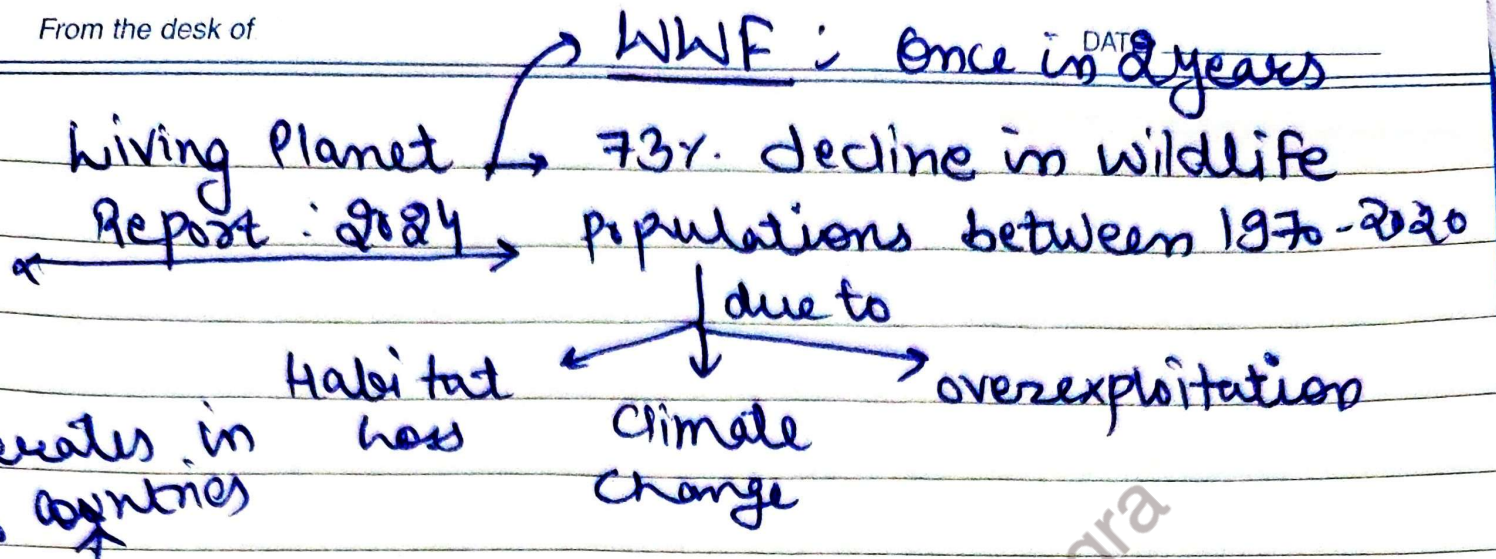 From the desk of
DATE
WWF : Once in 2 years
Living Planet
Report : 2024
73% decline in wildlife
populations between 1970-2020
due to
Habitat
Loss
Climate
Change
overexploitation
in
countries